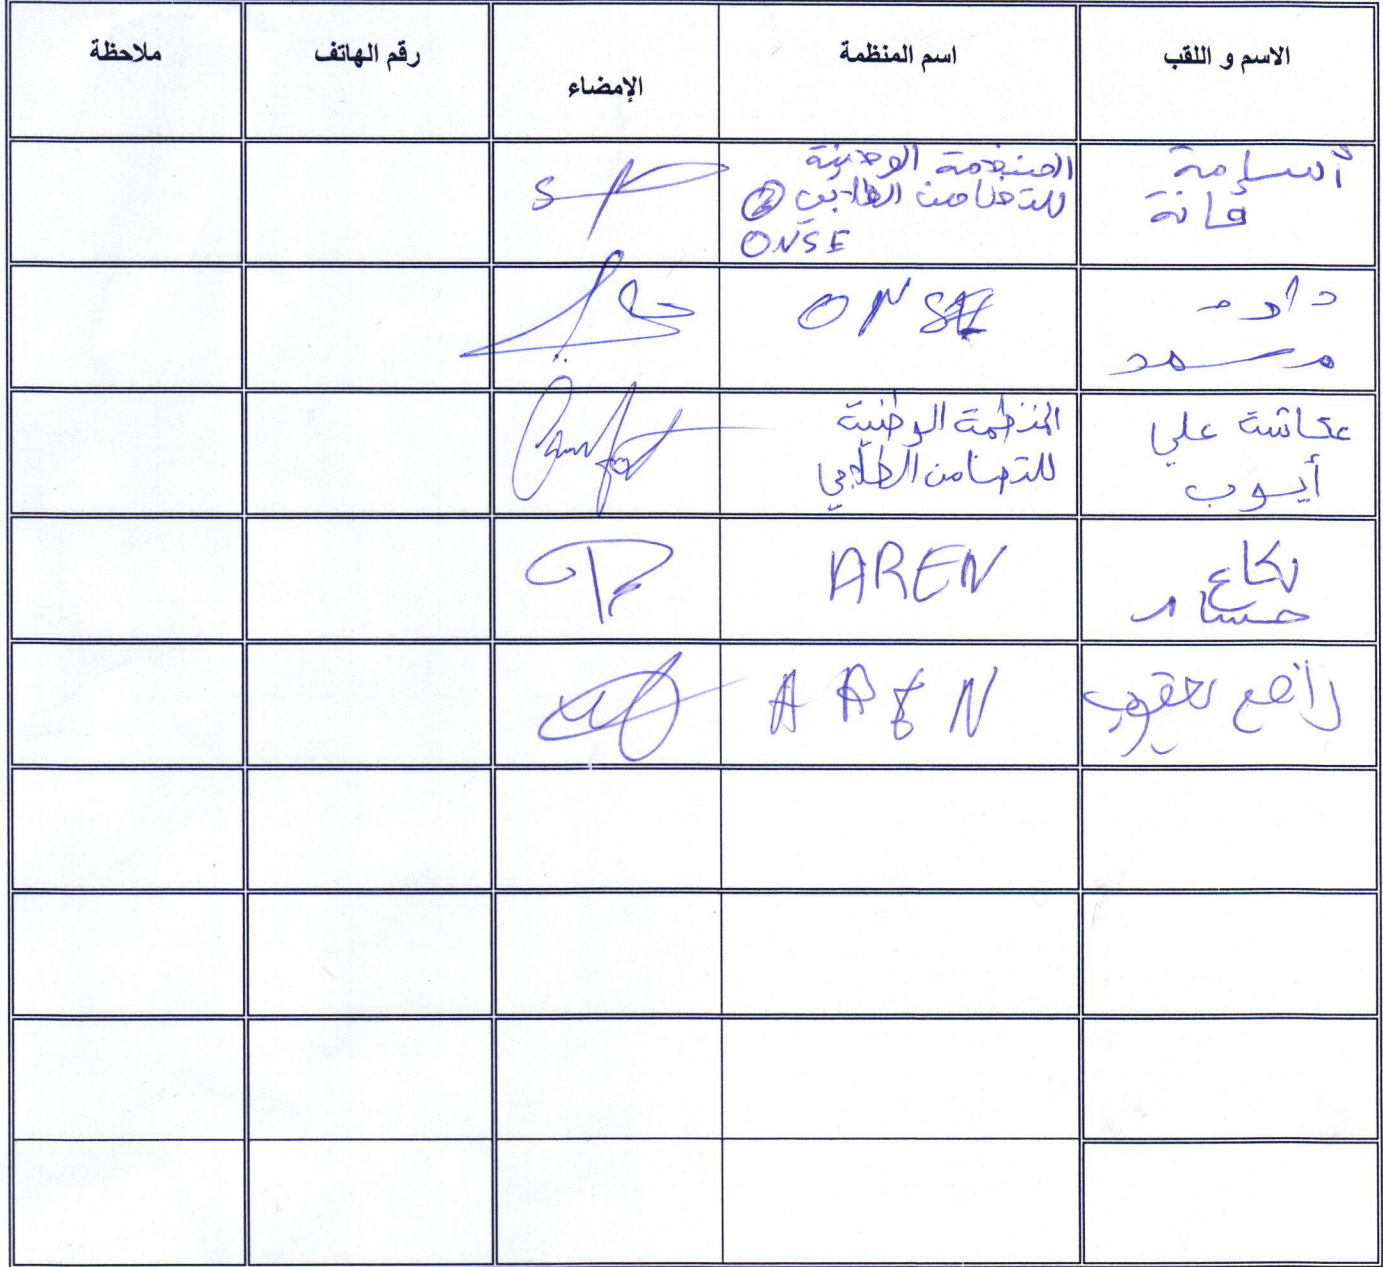 الاسم و اللقب
اسم المنظمة
الإمضاء
رقم الهاتف
ملاحظة
أسامة
قانة
المنظمة الوطنية
للتضامن الطلابي
ONSE
محمد
ONSE
عكاشة علي
أيوب
المنظمة الوطنية
للتضامن الطلابي
حسام
AREN
يعقوب
AREN